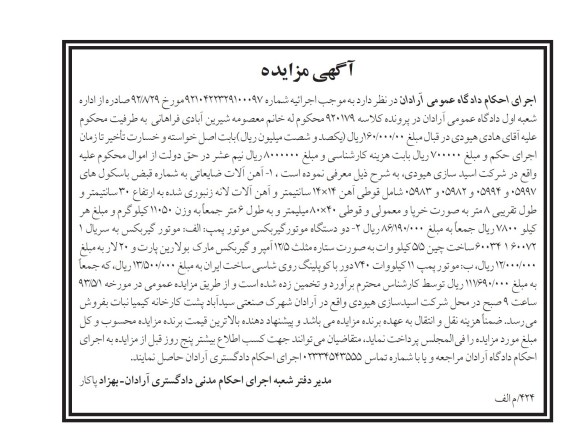 آگهی مزایده
اجرای احکام دادگاه عمومی آرادان در نظر دارد به موجب اجرائیه شماره ۹۲۱۰۴۲۲۳۲۹۱۰۰۰۹۷ مورخ ۹۲/۸/۲۹ صادره از اداره
شعبه اول دادگاه عمومی آرادان در پرونده کلاسه ۹۲۰۱۷۹ محکوم له خانم معصومه شیرین آبادی فراهانی به طرفیت محکوم
علیه آقای هادی هیودی در قبال مبلغ ۱۶۰/۰۰۰/۰۰ ریال (یکصد و شصت میلیون ریال) بابت اصل خواسته و خسارت تأخیر تا زمان
اجرای حکم و مبلغ ۷۰۰۰۰۰ ریال بابت هزینه کارشناسی و مبلغ ۸۰۰۰۰۰۰ ریال نیم عشر در حق دولت از اموال محکوم علیه
واقع در شرکت اسید سازی هیودی، به شرح ذیل معرفی نموده است ، ۱- آهن آلات ضایعاتی به شماره قبض باسکول های
۰۵۹۹۷ و ۰۵۹۹۴ و ۰۵۹۸۲ و ۰۵۹۸۳ شامل قوطی آهن ۱۴×۱۴ سانتیمتر و آهن آلات لانه زنبوری شده به ارتفاع ۳۰ سانتیمتر و
طول تقریبی ۸ متر به صورت خرپا و معمولی و قوطی ۴۰×۸۰ میلیمتر و به طول ۶ متر جمعاً به وزن ۱۱۰۵۰ کیلوگرم و مبلغ هر
کیلو ۷۸۰۰ ریال جمعاً به مبلغ ۸۶/۱۹۰/۰۰۰ ریال ۲- دو دستگاه موتورگیربکس موتور پمپ: الف: موتور گیربکس به سریال ۱
۶۰۰۷۲ ۶۰۰۳۴۱ ساخت چین ۵/۵ کیلووات به صورت ستاره مثلث ۱۲/۵ آمپر و گیربکس مارک بولارین پارت و ۲۰ لار به مبلغ
۱۲/۰۰۰/۰۰۰ ریال، ب: موتور پمپ ۱۱ کیلووات ۷۴۰ دور با کوپلینگ روی شاسی ساخت ایران به مبلغ ۱۳/۵۰۰/۰۰۰ ریال، که جمعاً
به مبلغ ۱۱۱/۶۹۰/۰۰۰ ریال توسط کارشناس محترم برآورد و تخمین زده شده است و از طریق مزایده عمومی در مورخه ۹۳/۵/۱
ساعت ۹ صبح در محل شرکت اسیدسازی هیودی واقع در آرادان شهرک صنعتی سیدآباد پشت کارخانه کیمیا نبات بفروش
می رسد. ضمناً هزینه نقل و انتقال به عهده برنده مزایده می باشد و پیشنهاد دهنده بالاترین قیمت برنده مزایده محسوب و کل
مبلغ مورد مزایده را فی المجلس پرداخت نماید، متقاضیان می توانند جهت کسب اطلاع بیشتر پنج روز قبل از مزایده به اجرای
احکام دادگاه آرادان مراجعه و یا با شماره تماس ۰۲۳۳۴۵۴۳۵۵۵ اجرای احکام دادگستری آرادان حاصل نمایند.
مدیر دفتر شعبه اجرای احکام مدنی دادگستری آرادان- بهزاد پاکار
۴۲۴/م الف